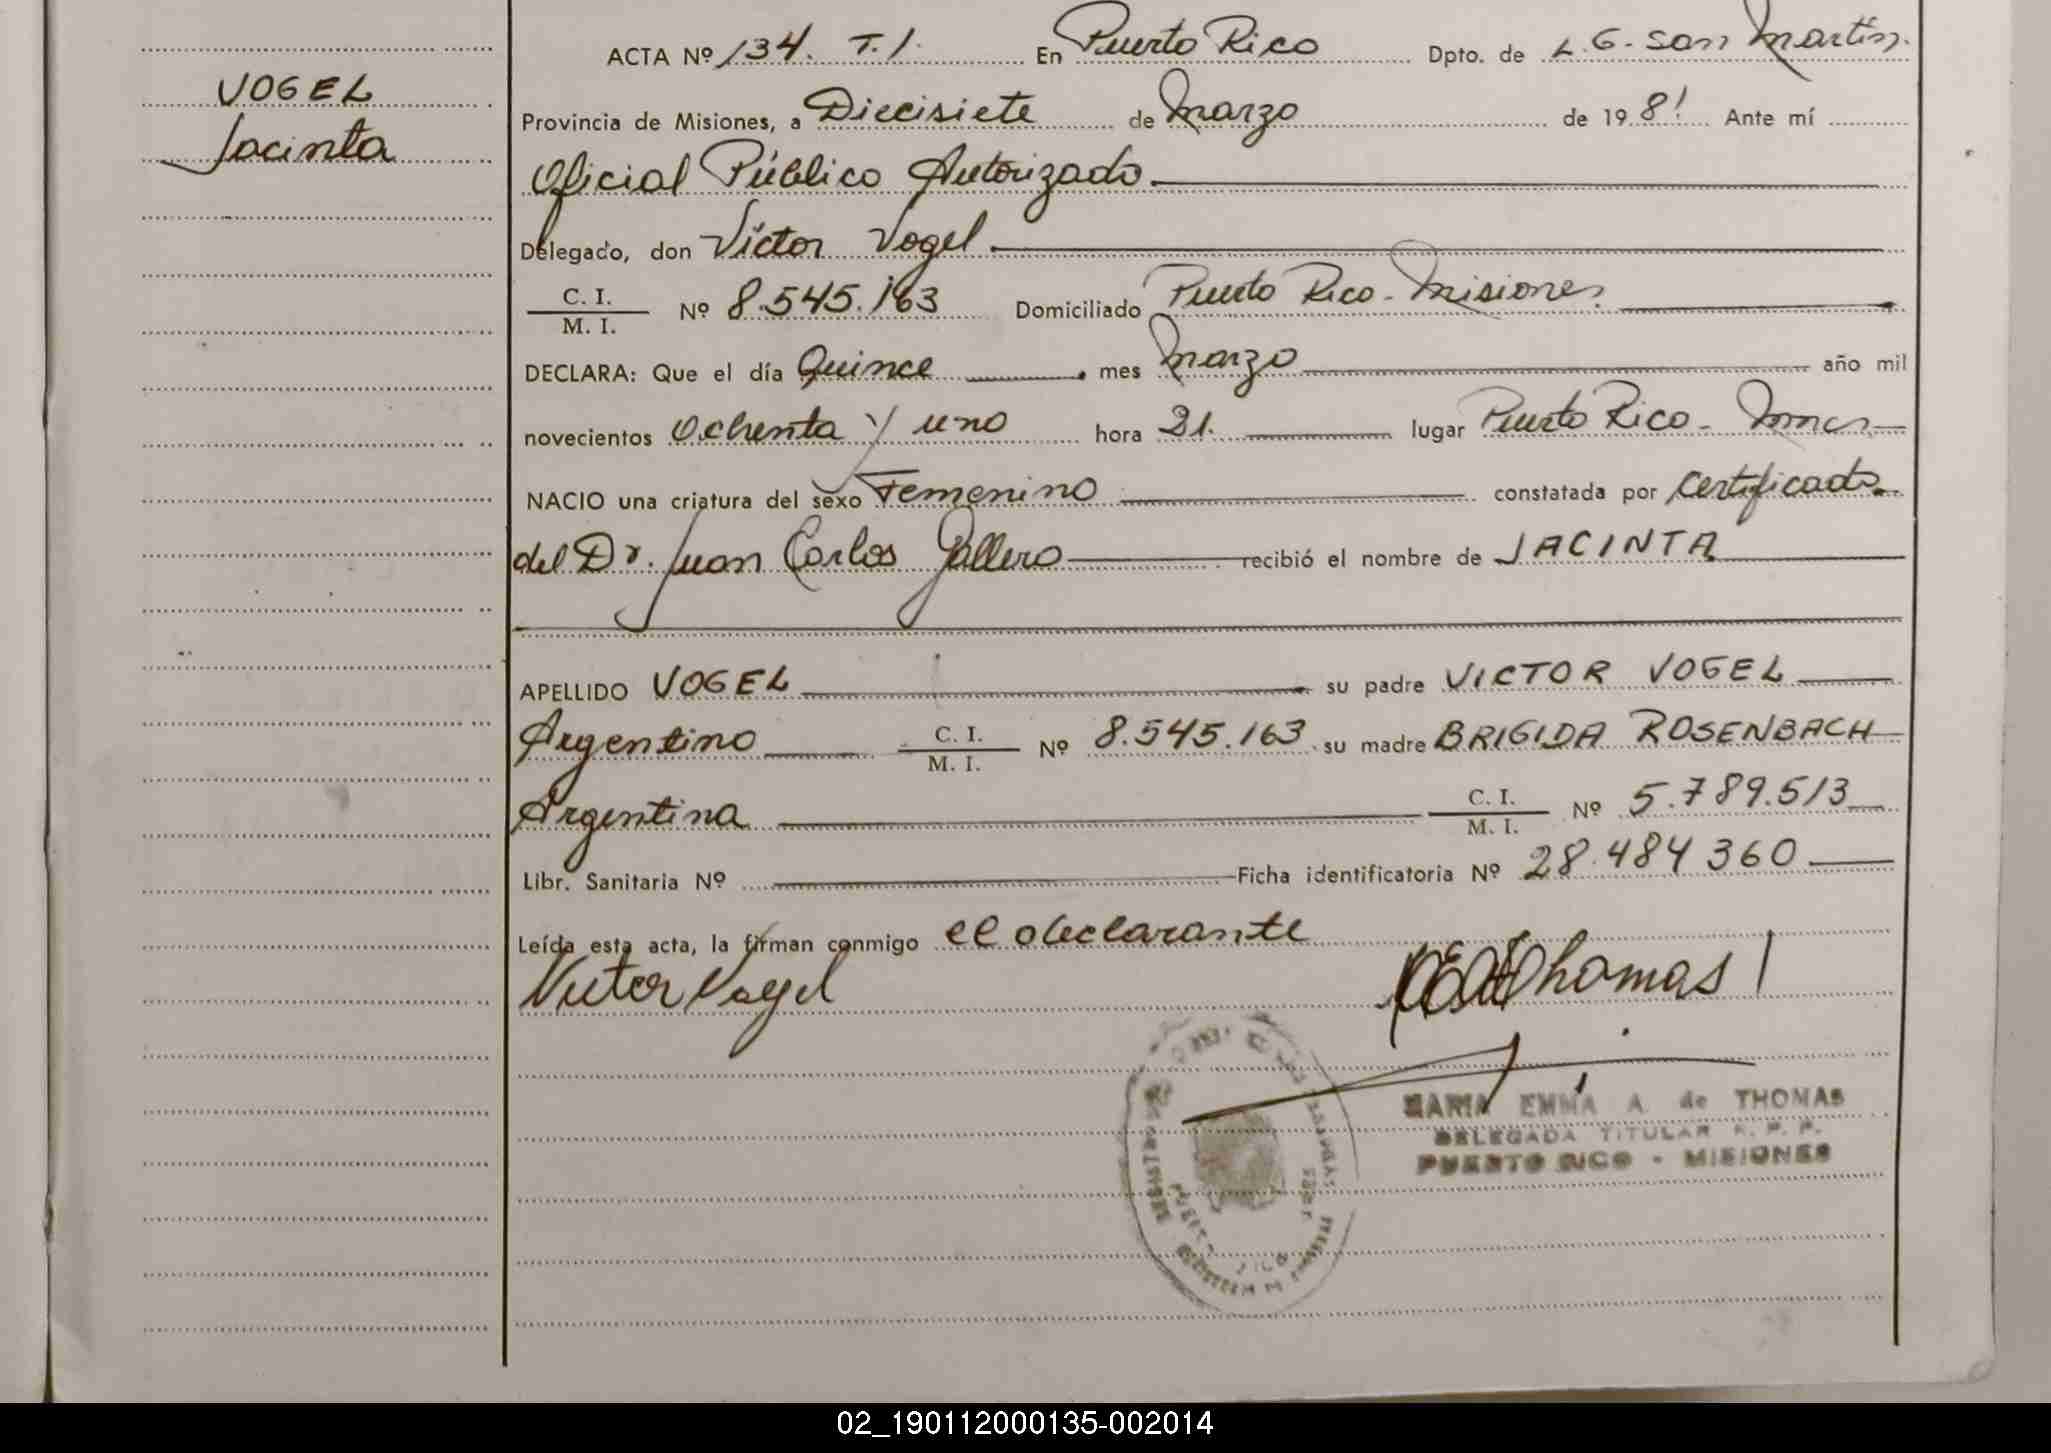 VOGEL
Jacinta
ACTA Nº 134. T.1. En Puerto Rico Dpto. de L.G. San Martín.
Provincia de Misiones, a Diecisiete de Marzo de 1981 Ante mí
Oficial Público Autorizado
Delegado, don Víctor Vogel
C. I.
M. I.
Nº 8.545.163 Domiciliado Puerto Rico - Misiones.
DECLARA: Que el día Quince mes Marzo año mil
novecientos Ochenta y uno hora 21. lugar Puerto Rico - Mnes.
NACIO una criatura del sexo Femenino constatada por Certificado
del Dr. Juan Carlos Gallero recibió el nombre de JACINTA
APELLIDO VOGEL su padre VICTOR VOGEL
Argentino C. I.
M. I.
Nº 8.545.163 su madre BRIGIDA ROSENBACH
Argentina C. I.
M. I.
Nº 5.789.513
Libr. Sanitaria Nº Ficha identificatoria Nº 28.484 360
Leída esta acta, la firman conmigo el declarante
Victor Vogel Thomas
MARIA EMMA A. de THOMAS
DELEGADA TITULAR R. P. P.
PUERTO RICO - MISIONES
02_190112000135-002014